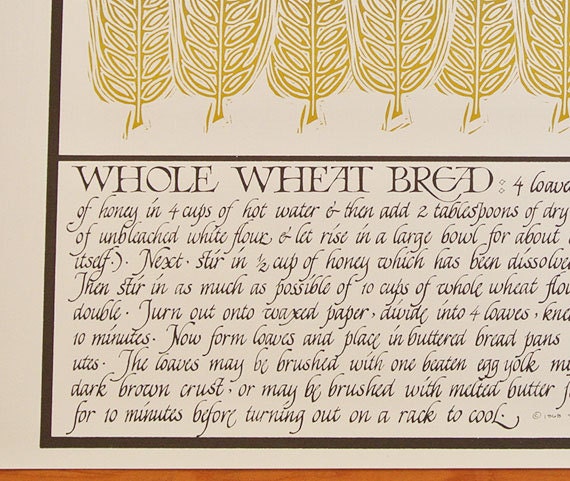 WHOLE WHEAT BREAD : 4 loaves
of honey in 4 cups of hot water & then add 2 tablespoons of dry
of unbleached white flour & let rise in a large bowl for about
itself.). Next · stir in ½ cup of honey which has been dissolve
Then stir in as much as possible of 10 cups of whole wheat flou
double · Turn out onto waxed paper, divide into 4 loaves, kne
10 minutes · Now form loaves and place in buttered bread pans
utes · The loaves may be brushed with one beaten egg yolk mi
dark brown crust, or may be brushed with melted butter
for 10 minutes before turning out on a rack to cool ·